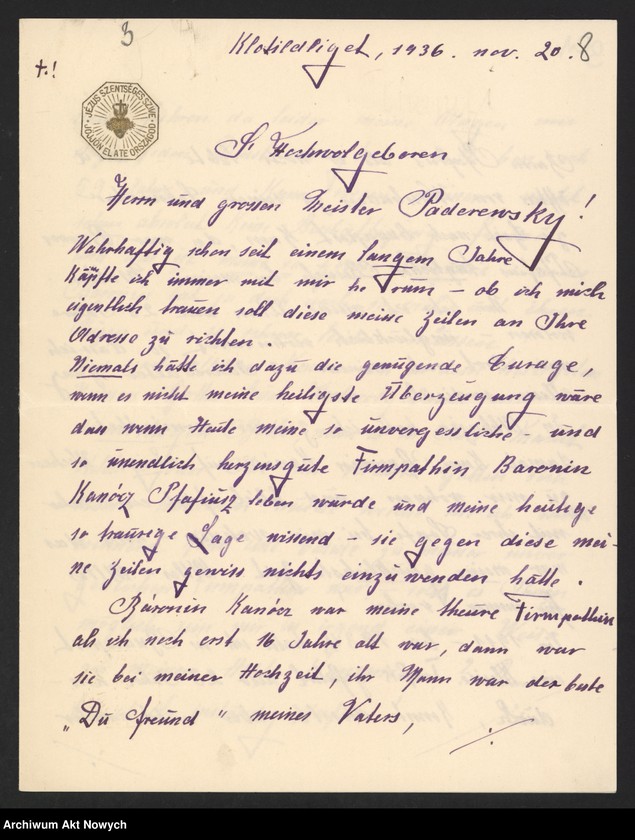 3
Klotildliget, 1936. nov. 20. 8
+.!
JÉZUS SZENTSÉGES SZIVE
JÖJJÖN EL A TE ORSZÁGOD
S. Hochwolgeboren
Herrn und grossen Meister Paderewsky!
Wahrhaftig schon seit einem langem Jahre
käpfte ich immer mit mir herum – ob ich mich
eigentlich trauen soll diese meine Zeilen an Ihre
Adresse zu richten.
Niemals hätte ich dazu die genügende Curage,
wenn es nicht meine heiligste Überzeugung wäre
das wenn Heute meine so unvergessliche – und
so unendlich herzensgute Firmpathin Baronin
Kanócz leben würde und meine heutige
so traurige Lage wissend – sie gegen diese mei-
ne Zeilen gewiss nichts einzuwenden hätte.
Báronin Kanócz war meine theure Firmpathin
als ich noch erst 16 Jahre alt war, dann war
sie bei meiner Hochzeit, ihr Mann war der beste
„Du freund" meines Vaters,
./.
Archiwum Akt Nowych